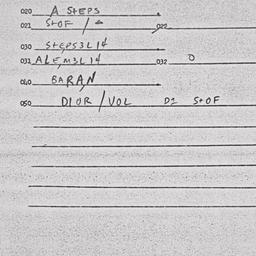 020 A STEPS
021 StOF / 022
030 StEPS3L14
031 ALEM3L14 032 0
040 BARAN
050 DIOR/VOL D2 StOF